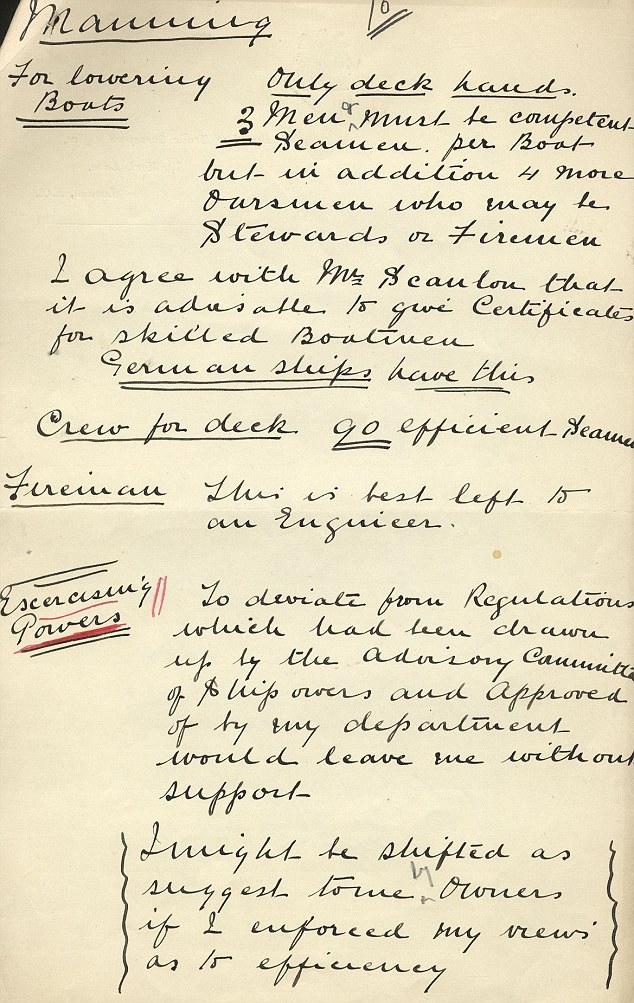 Manning
For lowering Only deck hands.
Boats
3 Men must be competent
Seamen. per Boat
but in addition 4 more
Oarsmen who may be
Stewards or Firemen
I agree with Mr Scanlon that
it is advisable to give Certificates
for skilled Boatmen
German ships have this
Crew for deck 90 efficient Seamen
Fireman This is best left to
an Engineer.
Excercising To deviate from Regulations
Powers which had been drawn
up by the Advisory Committe
of Ship owers and Approved
of by my department
would leave me without
support
I might be shifted as
suggest tome by Owners
if I enforced my views
as to efficiency